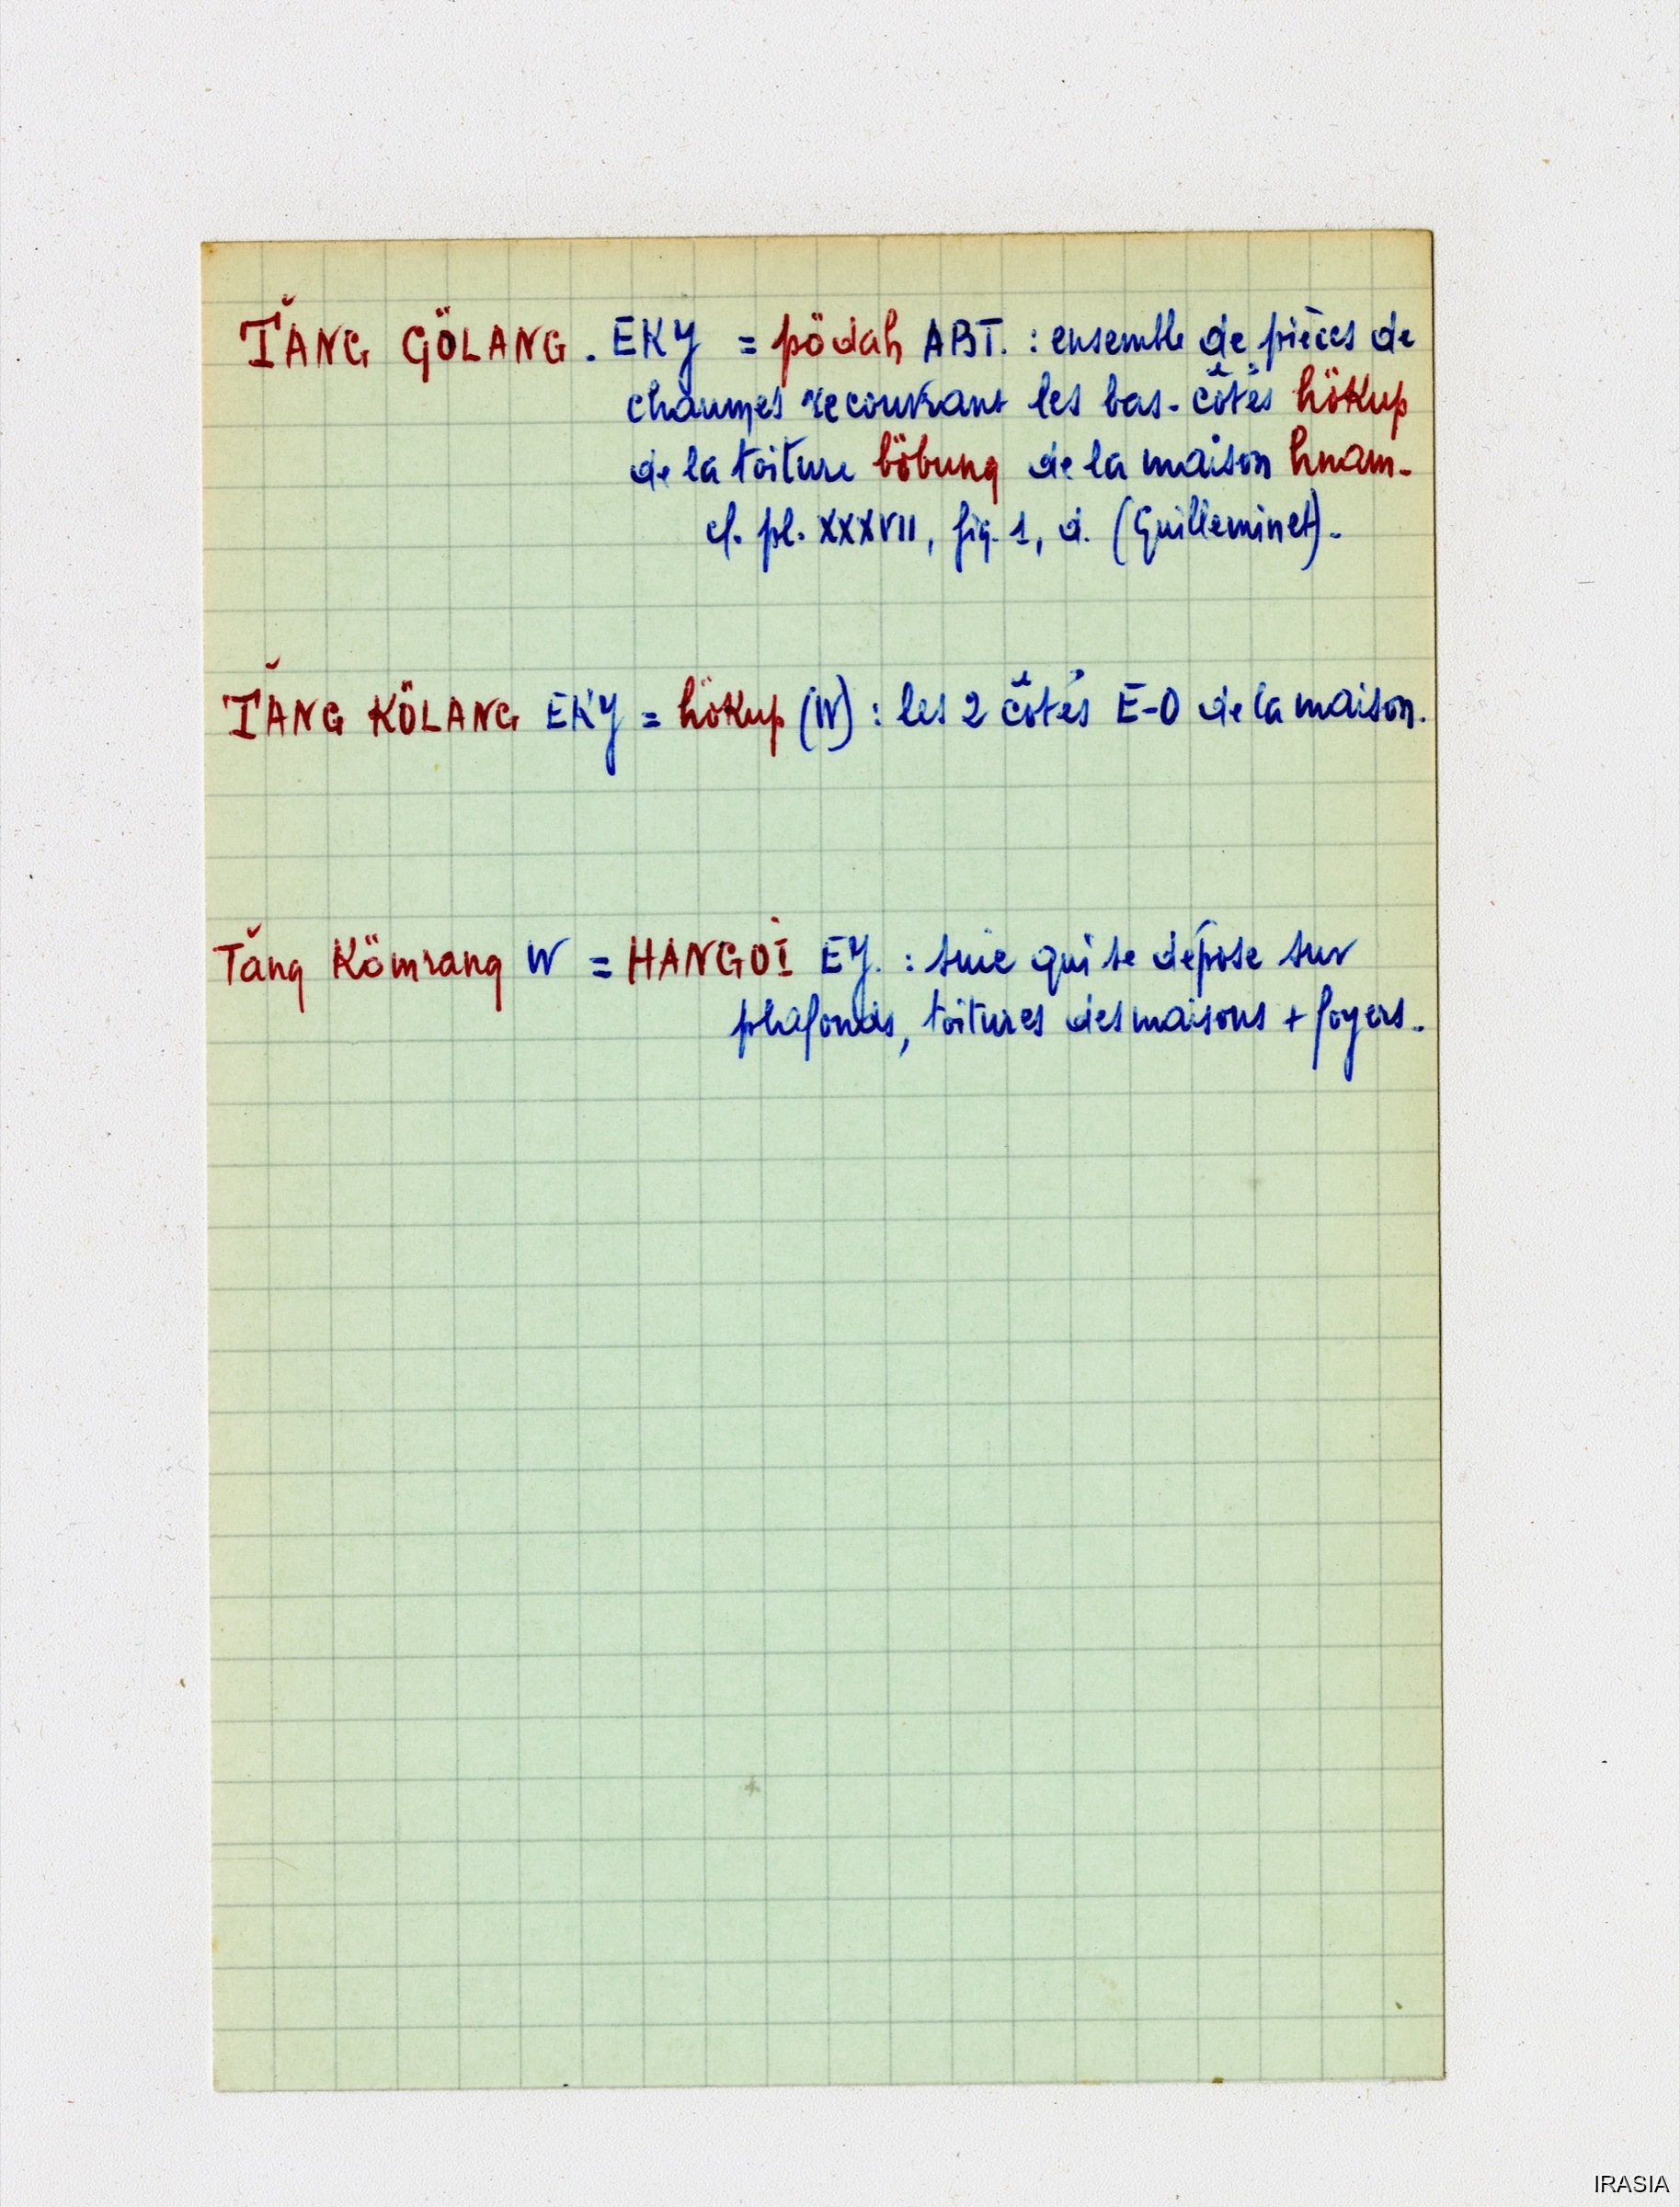 TĂNG GÖLANG. EKY = pödah ABT. : ensemble de pièces de
chaumes recouvrant les bas-côtés hökup
de la toiture böbung de la maison hnam.
cf. pl. XXXVII, fig. 1, d. (Guilleminet).
TĂNG KÖLANG EKY = hökup (W) : les 2 côtés E-O de la maison.
Tăng Kömrang W = HANGOI EY. : suie qui se dépose sur
plafonds, toitures des maisons + foyers.
IRASIA